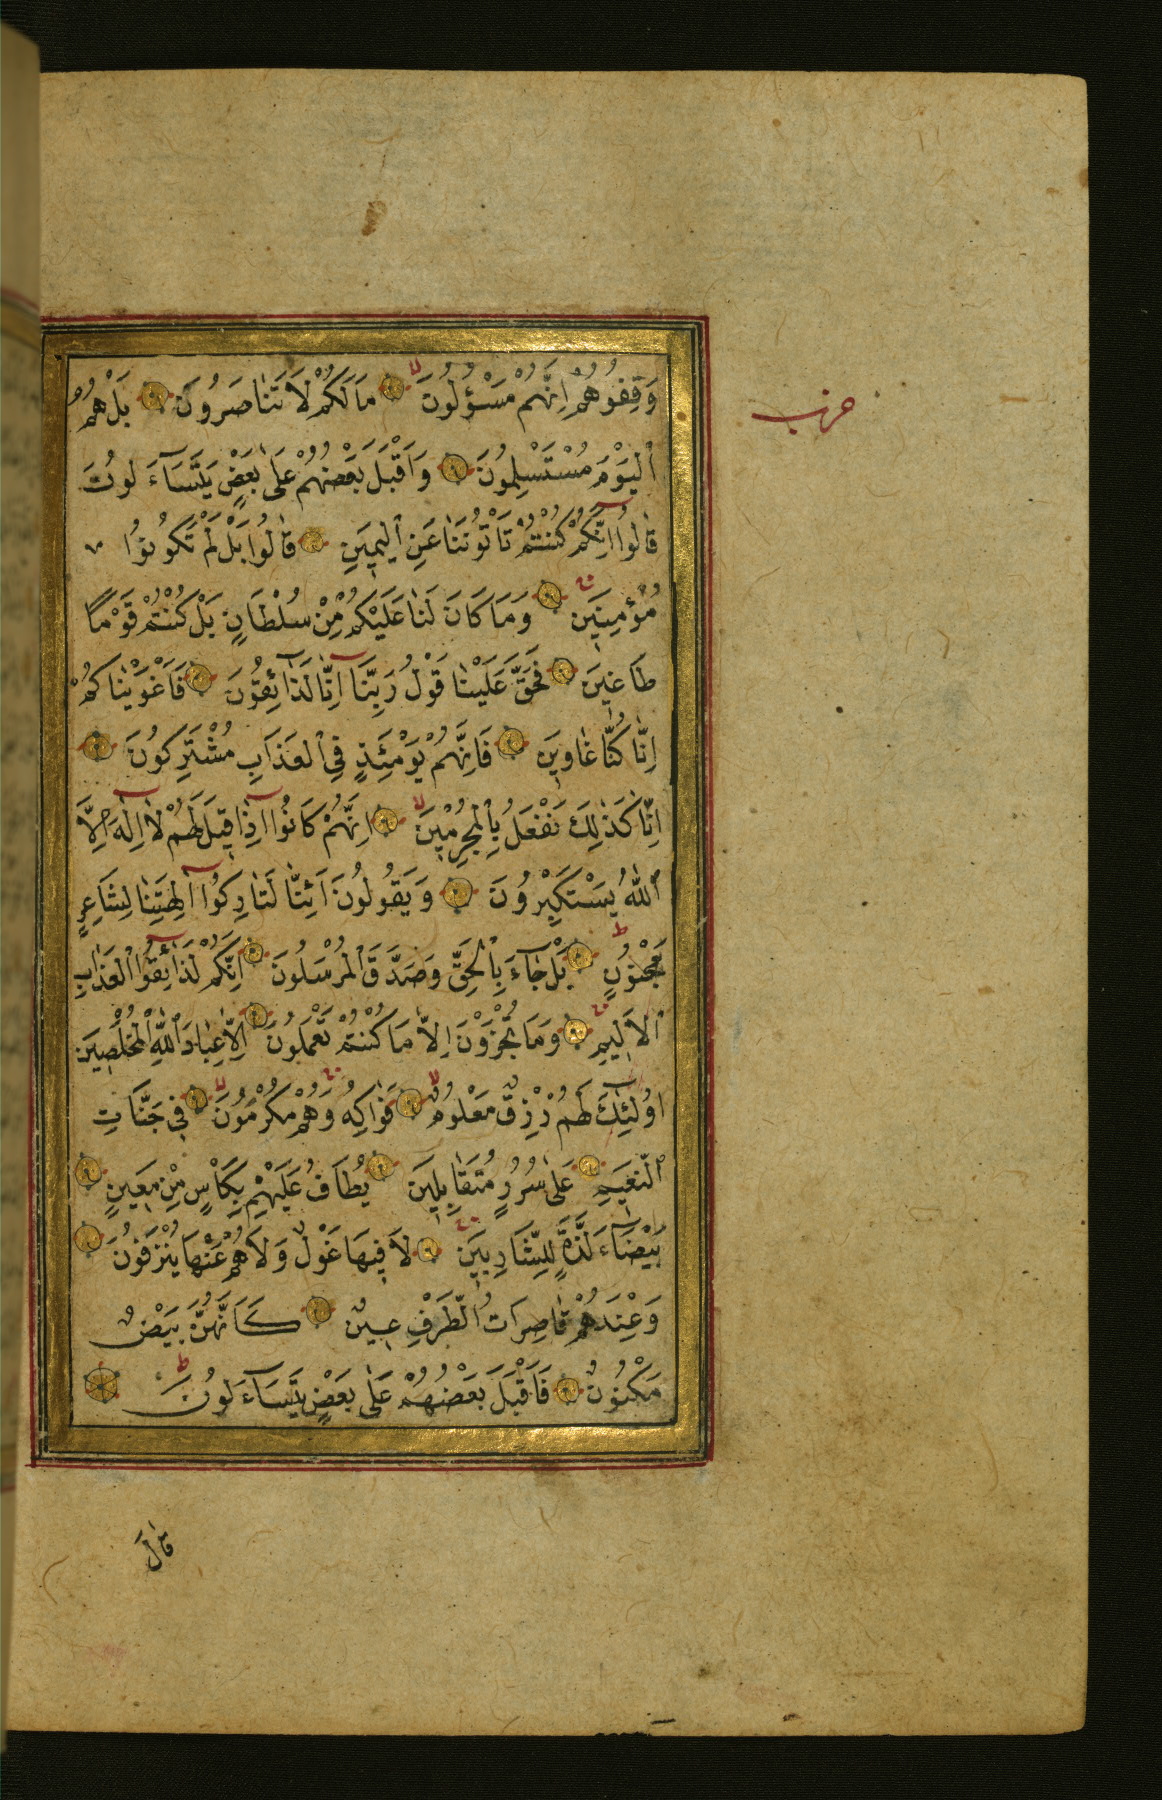 وَقِفُوهُمْ اِنَّهُمْ مَسْؤُلُونَ ۙ مَالَكُمْ لَا تَنَاصَرُونَ بَلْ هُمُ
حزب
اْليَوْمَ مُسْتَسْلِمُونَ وَاَقْبَلَ بَعْضُهُمْ عَلٰى بَعْضٍ يَتَسَآءَلُونَ
قَالُوا اِنَّكُمْ كُنْتُمْ تَأْتُونَنَا عَنِ اْليَمِينِ قَالُوا بَلْ لَمْ تَكُونُوا
مُؤْمِنِينَ وَمَا كَانَ لَنَا عَلَيْكُمْ مِنْ سُلْطَانٍ بَلْ كُنْتُمْ قَوْمًا
طَاغِينَ فَحَقَّ عَلَيْنَا قَوْلُ رَبِّنَآ اِنَّا لَذَآئِقُونَ فَاَغْوَيْنَاكُمْ
اِنَّا كُنَّا غَاوِينَ فَاِنَّهُمْ يَوْمَئِذٍ فِي اْلعَذَابِ مُشْتَرِكُونَ
اِنَّا كَذٰلِكَ نَفْعَلُ بِاْلمُجْرِمِينَ ۙ اِنَّهُمْ كَانُوآ اِذَا قِيلَ لَهُمْ لَآ اِلٰهَ اِلَّا
اللّٰهُ يَسْتَكْبِرُونَ وَيَقُولُونَ اَئِنَّا لَتَارِكُوآ اٰلِهَتِنَا لِشَاعِرٍ
مَجْنُونٍ ۜ بَلْ جَآءَ بِاْلحَقِّ وَصَدَّقَ اْلمُرْسَلُونَ اِنَّكُمْ لَذَآئِقُوا اْلعَذَابِ
اْلاَلِيمِ وَمَا تُجْزَوْنَ اِلَّا مَا كُنْتُمْ تَعْمَلُونَ اِلَّا عِبَادَ اللّٰهِ اْلمُخْلَصِينَ
اُولٰٓئِكَ لَهُمْ رِزْقٌ مَعْلُومٌ ۙ فَوَاكِهُ وَهُمْ مُكْرَمُونَ ۙ فِي جَنَّاتِ
النَّعِيمِ عَلٰى سُرُرٍ مُتَقَابِلِينَ يُطَافُ عَلَيْهِمْ بِكَأْسٍ مِنْ مَعِينٍ
بَيْضَآءَ لَذَّةٍ لِلشَّارِبِينَ لَا فِيهَا غَوْلٌ وَلَا هُمْ عَنْهَا يُنْزَفُونَ
وَعِنْدَهُمْ قَاصِرَاتُ الطَّرْفِ عِينٌ كَاَنَّهُنَّ بَيْضٌ
مَكْنُونٌ فَاَقْبَلَ بَعْضُهُمْ عَلٰى بَعْضٍ يَتَسَآءَلُونَ
قَالَ